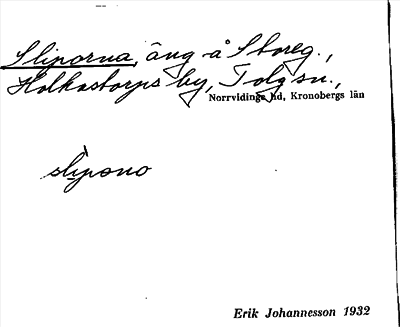 Sliporna, äng å Storeg.,
Holkastorps by, Tolgsn.,
Norrvidinge hd, Kronobergs län
slìpơnơ
Erik Johannesson 1932